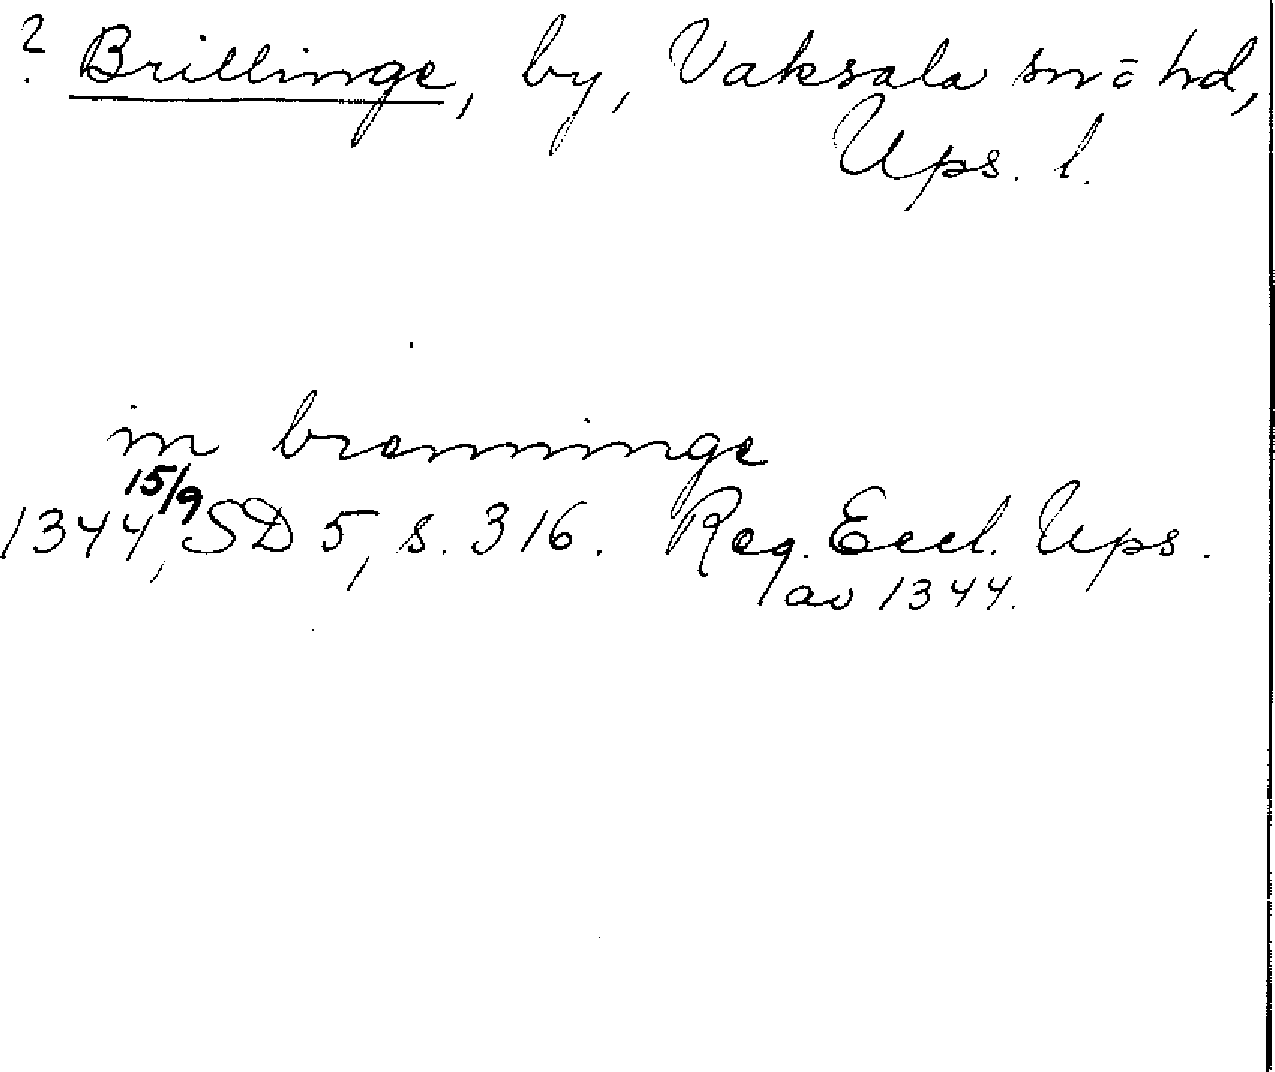 ? Brillinge, by, Vaksala sn o hd,
Ups. l.
in brenninge
15/9
1344, SD 5, s. 316. Reg. Eccl. Ups.
av 1344.